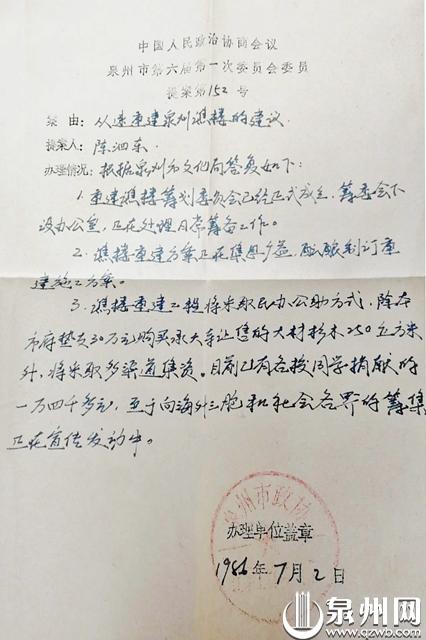 中国人民政治协商会议
泉州市第六届第一次委员会委员
提案第152号
案由：从速重建泉州谯楼的建议
提案人：陈泗东
办理情况：根据泉州市文化局答复如下：
1. 重建谯楼筹划委员会已经正式成立，筹委会下
设办公室，正在处理日常筹备工作。
2. 谯楼重建方案正在集思广益，酝酿制订重
建施工方案。
3. 谯楼重建工程将采取民办公助方式，除本
市府垫支30万元购买承天寺让售的大材杉木250立方米
外，将采取多渠道集资。目前已有各校同学捐献的
一万四千多元，至于向海外三胞和社会各界的筹集
正在宣传发动中。
泉州市政协
办理单位盖章
1986年7月2日
泉州网
www.qzwb.com